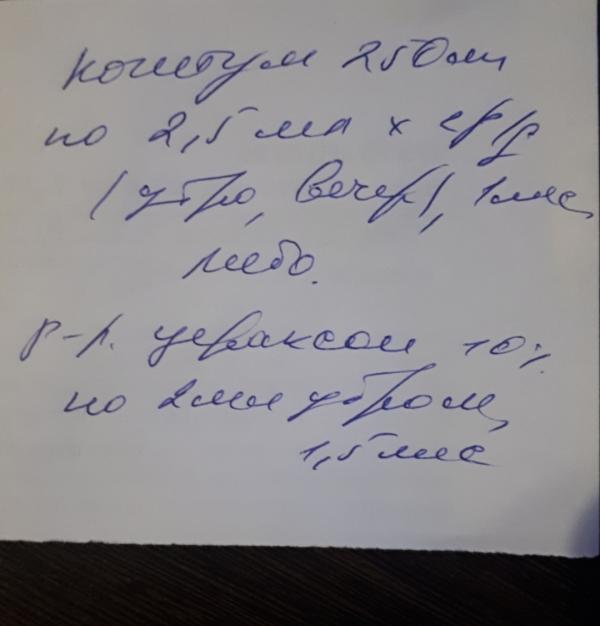 когитум 250мг
по 2,5 мл х 2р/д
(утро, вечер), 1мес
либо.
р-р. цераксон 10%
по 2мл утром,
1,5мес